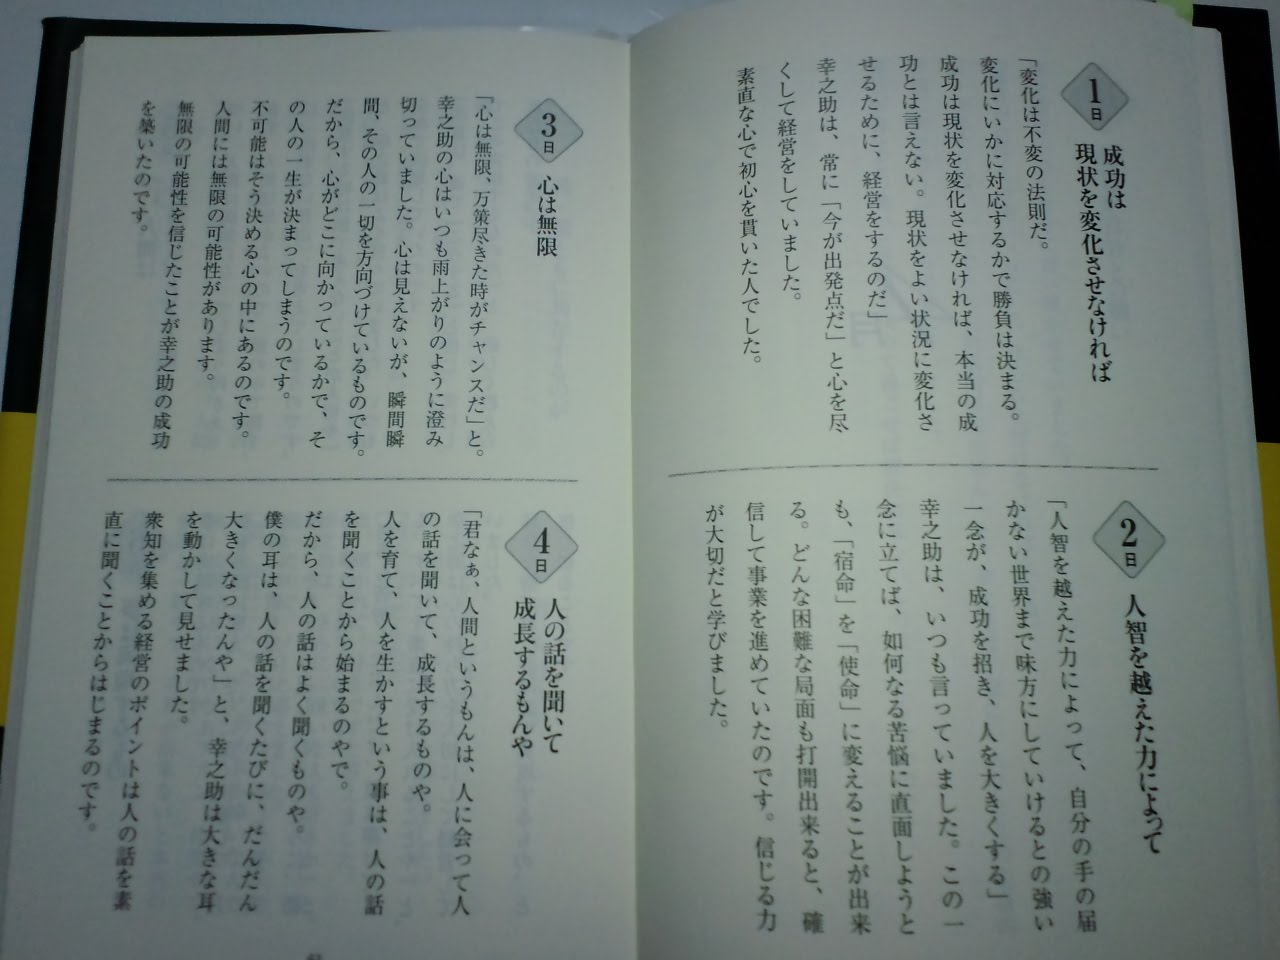 1日
成功は
現状を変化させなければ
「変化は不変の法則だ。
変化にいかに対応するかで勝負は決まる。
成功は現状を変化させなければ、本当の成
功とは言えない。現状をよい状況に変化さ
せるために、経営をするのだ」
幸之助は、常に「今が出発点だ」と心を尽
くして経営をしていました。
素直な心で初心を貫いた人でした。
2日
人智を越えた力によって
「人智を越えた力によって、自分の手の届
かない世界まで味方にしていけるとの強い
一念が、成功を招き、人を大きくする」
幸之助は、いつも言っていました。この一
念に立てば、如何なる苦悩に直面しようと
も、「宿命」を「使命」に変えることが出来
る。どんな困難な局面も打開出来ると、確
信して事業を進めていたのです。信じる力
が大切だと学びました。
3日
心は無限
「心は無限、万策尽きた時がチャンスだ」と。
幸之助の心はいつも雨上がりのように澄み
切っていました。心は見えないが、瞬間瞬
間、その人の一切を方向づけているものです。
だから、心がどこに向かっているかで、そ
の人の一生が決まってしまうのです。
不可能はそう決める心の中にあるのです。
人間には無限の可能性があります。
無限の可能性を信じたことが幸之助の成功
を築いたのです。
4日
人の話を聞いて
成長するもんや
「君なぁ、人間というもんは、人に会って人
の話を聞いて、成長するものや。
人を育て、人を生かすという事は、人の話
を聞くことから始まるのやで。
だから、人の話はよく聞くものや。
僕の耳は、人の話を聞くたびに、だんだん
大きくなったんや」と、幸之助は大きな耳
を動かして見せました。
衆知を集める経営のポイントは人の話を素
直に聞くことからはじまるのです。